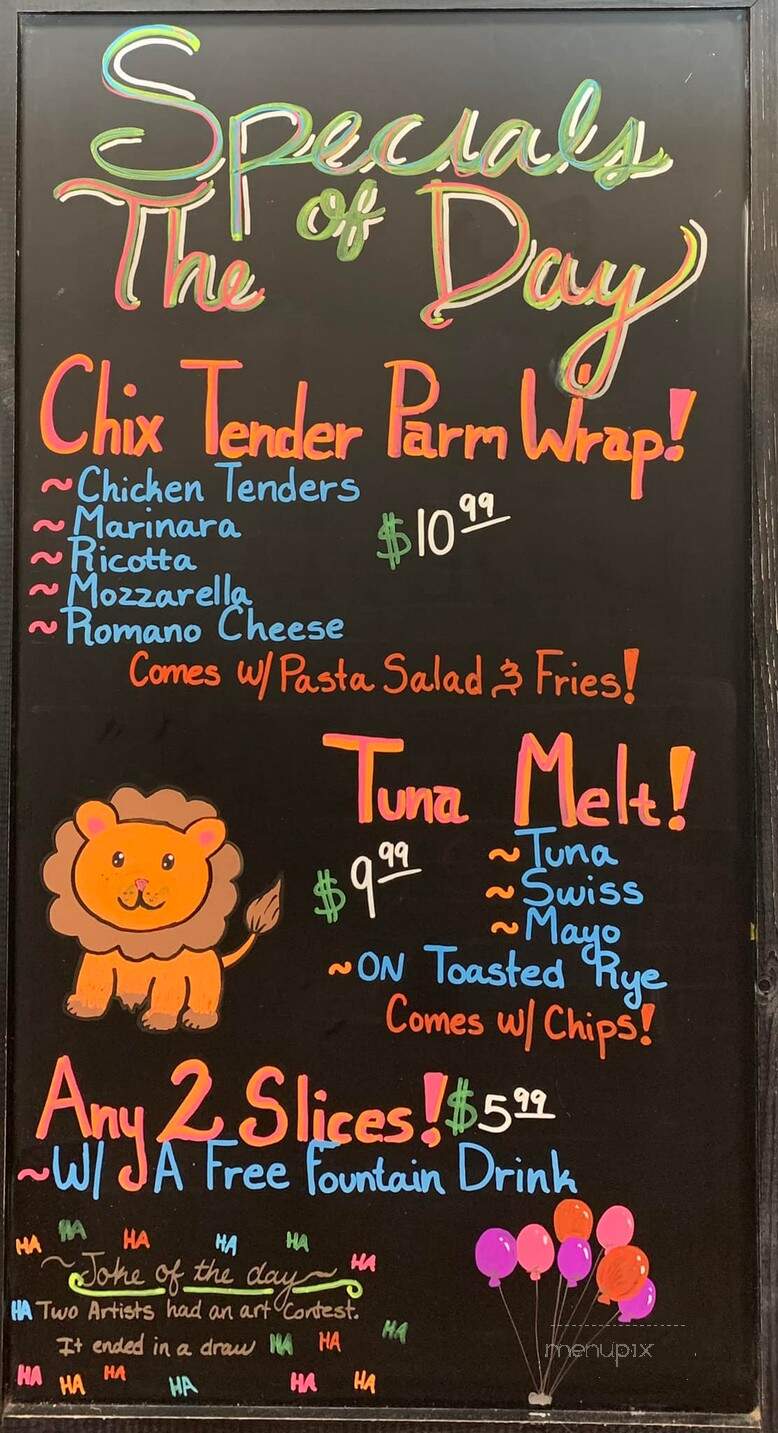 Specials
of
The Day
Chix Tender Parm Wrap!
~Chicken Tenders
~Marinara
$10.99
~Ricotta
~Mozzarella
~Romano Cheese
Comes w/ Pasta Salad & Fries!
Tuna Melt!
$9.99
~Tuna
~Swiss
~Mayo
~ON Toasted Rye
Comes w/ Chips!
Any 2 Slices! $5.99
~W/ A Free Fountain Drink
HA HA HA HA HA
~Joke of the day~ HA
HA Two Artists had an art contest.
It ended in a draw HA HA HA
HA HA HA HA HA HA
menupix